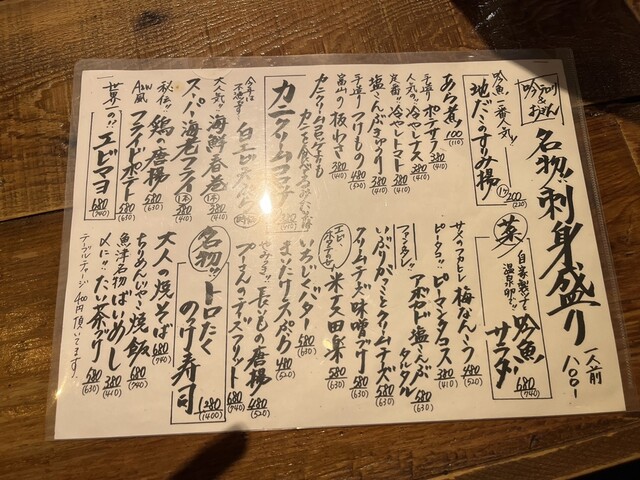 名物!!刺身盛り
一人前
吟魚一番人気!!
地だこのすりみ揚
1ケ
200
(220)
あら煮
100
(110)
手造りポテサラ
380
(410)
人気の!!冷やしナス
380
(410)
定番!!冷やしトマト
380
(410)
塩こんぶきゅうり
380
(410)
手造りつけもの
480
(520)
富山の板わさ
380
(410)
カニクリームコロッケよりも
カニを食べてるみたいな
カニクリームコロッケ
白エビ天ぷら
大人気!!海鮮春巻
1本
380
(410)
スーパー海老フライ
1本
380
(410)
秘伝!!鶏の唐揚
580
(630)
フライドポテト
580
(630)
世界一の!!
エビマヨ
680
(740)
菜
自家製ツナと
温泉卵の!!
吟魚サラダ
680
(740)
サメのフカヒレ梅なんこつ
480
(520)
ピータコス!!ピーマンタコス
380
(410)
アボカド塩こんぶ
タルタル
580
(630)
いぶりがっことクリームチーズ
580
(630)
クリームチーズ味噌漬け
580
(630)
いちじくバター
580
(630)
まいたけスパーク
480
(520)
やみつき!!長いもの唐揚
480
(520)
プーさんのチーズフリット
680
(740)
名物!!
トロたく
のっけ寿司
1280
(1400)
大人の焼そば
680
(740)
ちりめんじゃこ焼飯
680
(740)
魚津名物ばいめし
380
(410)
〆に!!だし茶漬け
580
(630)
テーブルチャージ400円頂いてます。